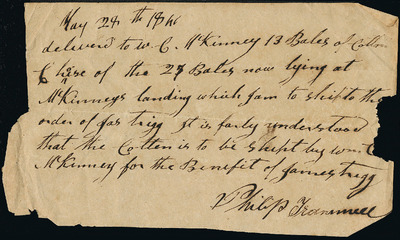 May 28th 1846
deliverd to W. C. McKinney 13 Bales of Cotton
these of the 25 Bales now lying at
McKinneys landing which I am to ship to the
order of Jas trigg It is farly understood
that the Cotten is to be shipt by
McKinney for the Benefit of James trigg
Philip Trammell